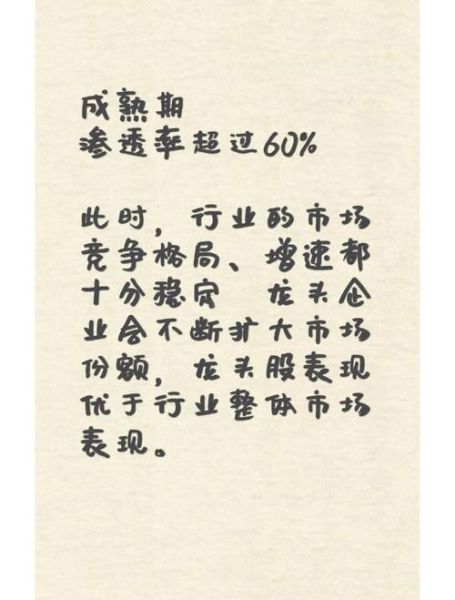 成熟期
渗透率超过60%
此时，行业的市场
竞争格局、增速都
十分稳定 龙头企
业会不断扩大市场
份额，龙头股表现
优于行业整体市场
表现。